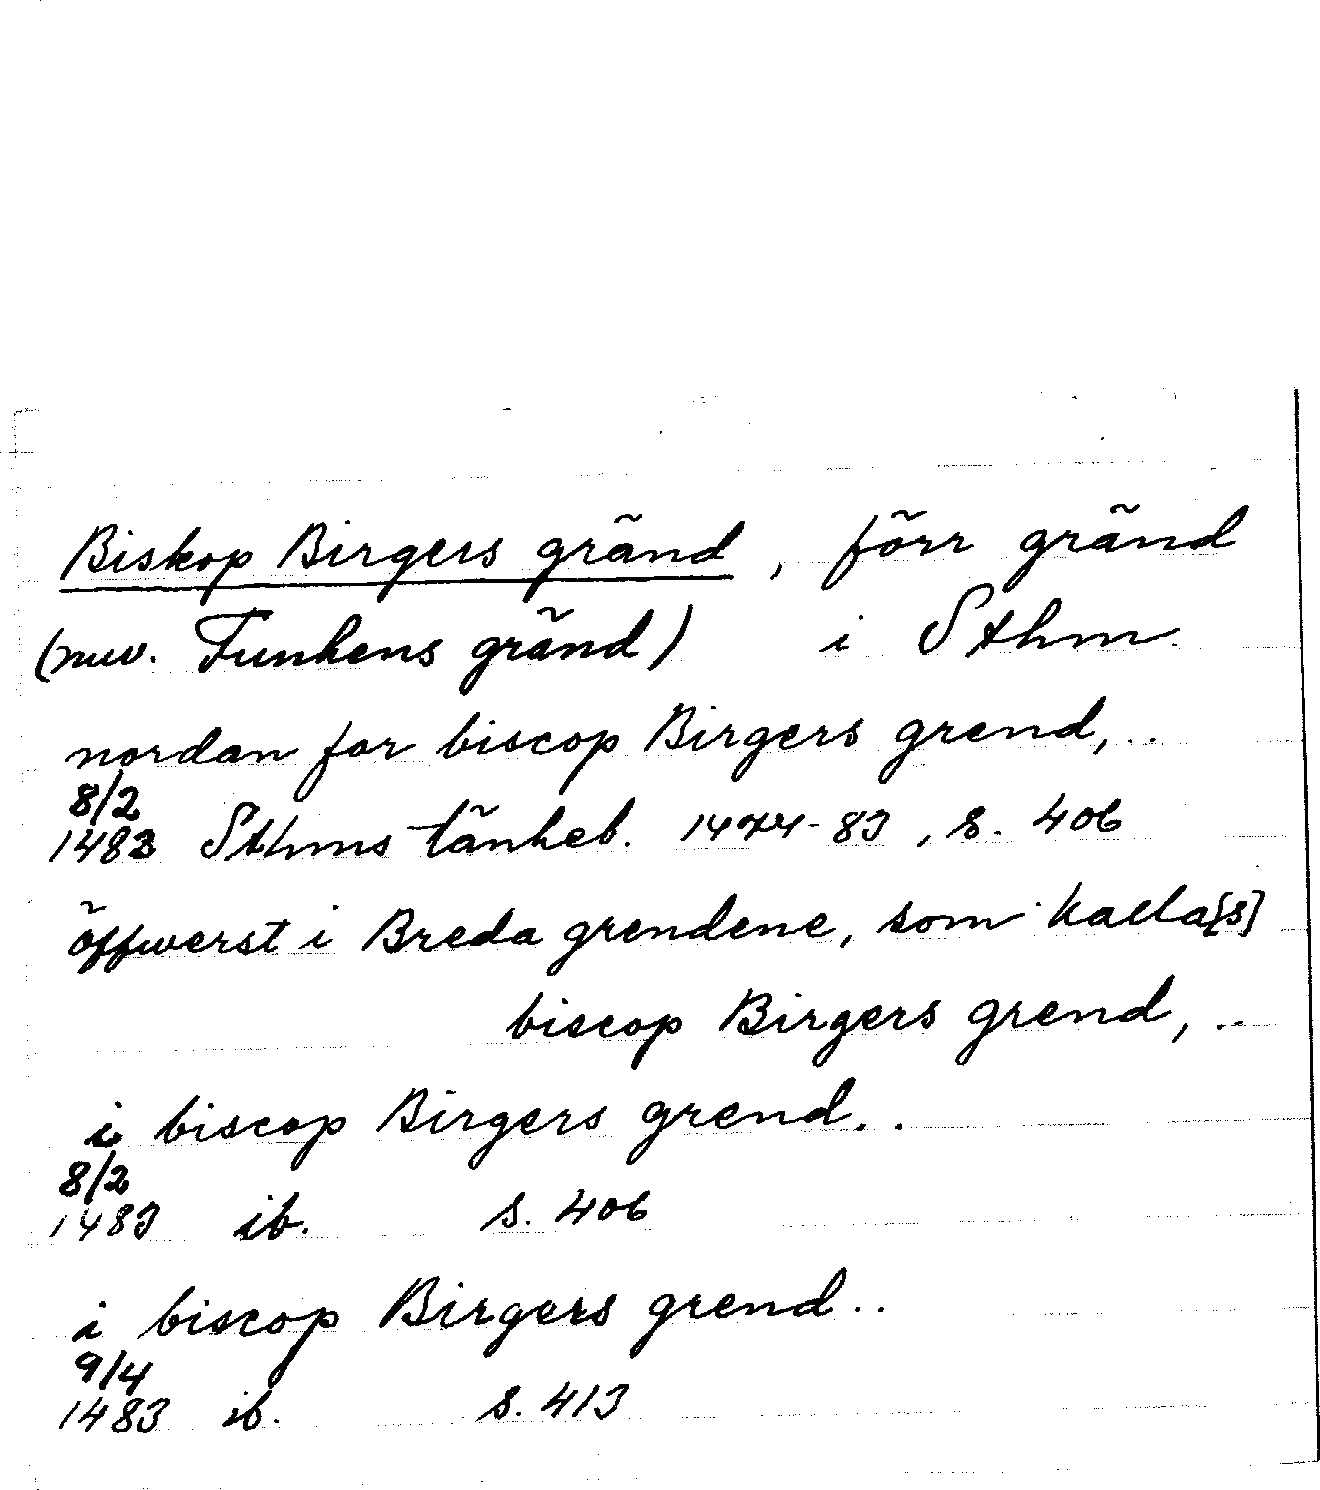 Biskop Birgers gränd, förr gränd
(nuv. Funkens gränd) i Sthm.
nordan for biscop Birgers grend, ..
8/2
1483 Sthms tänkeb. 1474-83, s. 406
öffwerst i Breda grendene, som kalla[s]
biscop Birgers grend, ..
i biscop Birgers grend. .
8/2
1483 ib. s. 406
i biscop Birgers grend ..
9/4
1483 ib. s. 413